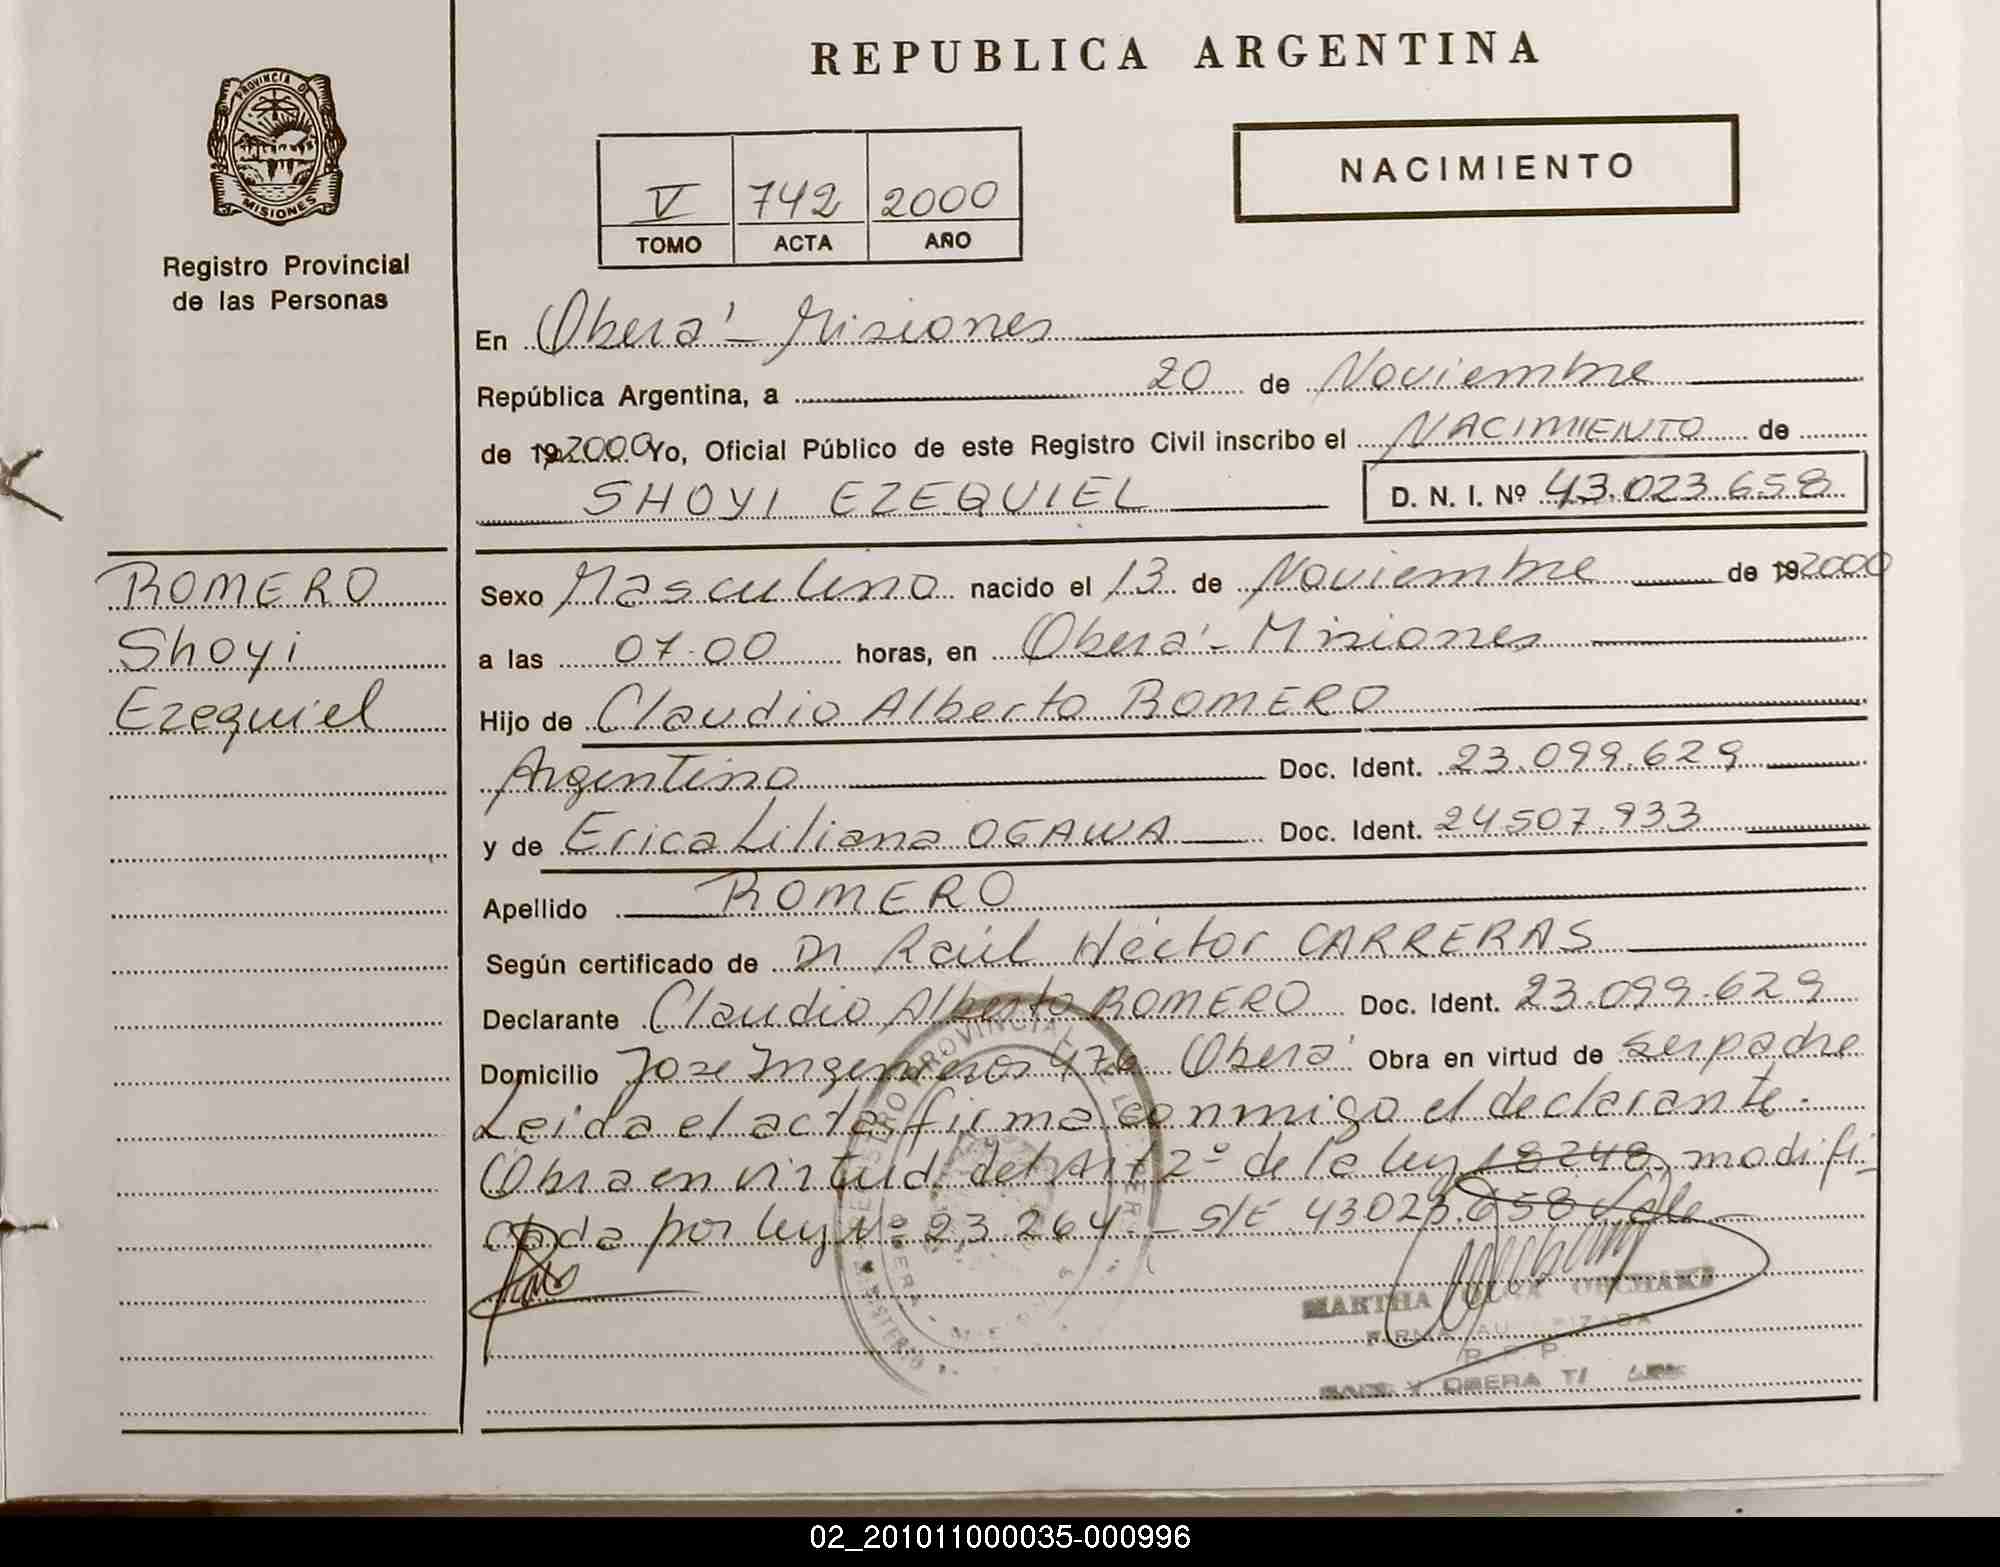 REPUBLICA ARGENTINA
PROVINCIA DE
MISIONES
Registro Provincial
de las Personas
NACIMIENTO
V 742 2000
TOMO ACTA AÑO
En Oberá - Misiones
República Argentina, a 20 de Noviembre
de 192000 Yo, Oficial Público de este Registro Civil inscribo el NACIMIENTO de
SHOYI EZEQUIEL D. N. I. Nº 43.023.658
ROMERO
Shoyi
Ezequiel
Sexo Masculino nacido el 13 de Noviembre de 192000
a las 07.00 horas, en Oberá - Misiones
Hijo de Claudio Alberto ROMERO
Argentino Doc. Ident. 23.099.629
y de Erica Liliana OGAWA Doc. Ident. 24507.933
Apellido ROMERO
Según certificado de Dr Raúl Héctor CARRERAS
Declarante Claudio Alberto ROMERO Doc. Ident. 23.099.629
Domicilio Jose Ingenieros 476 Oberá Obra en virtud de ser padre
Leida el acta firma conmigo el declarante.
Obra en virtud del Art 2º de la ley 18248 modifi-
cada por ley Nº 23.264 - S/E 43023.658 Vale
MARTHA
FIRMA AUTORIZADA
R. P. P.
OBERA
02_201011000035-000996